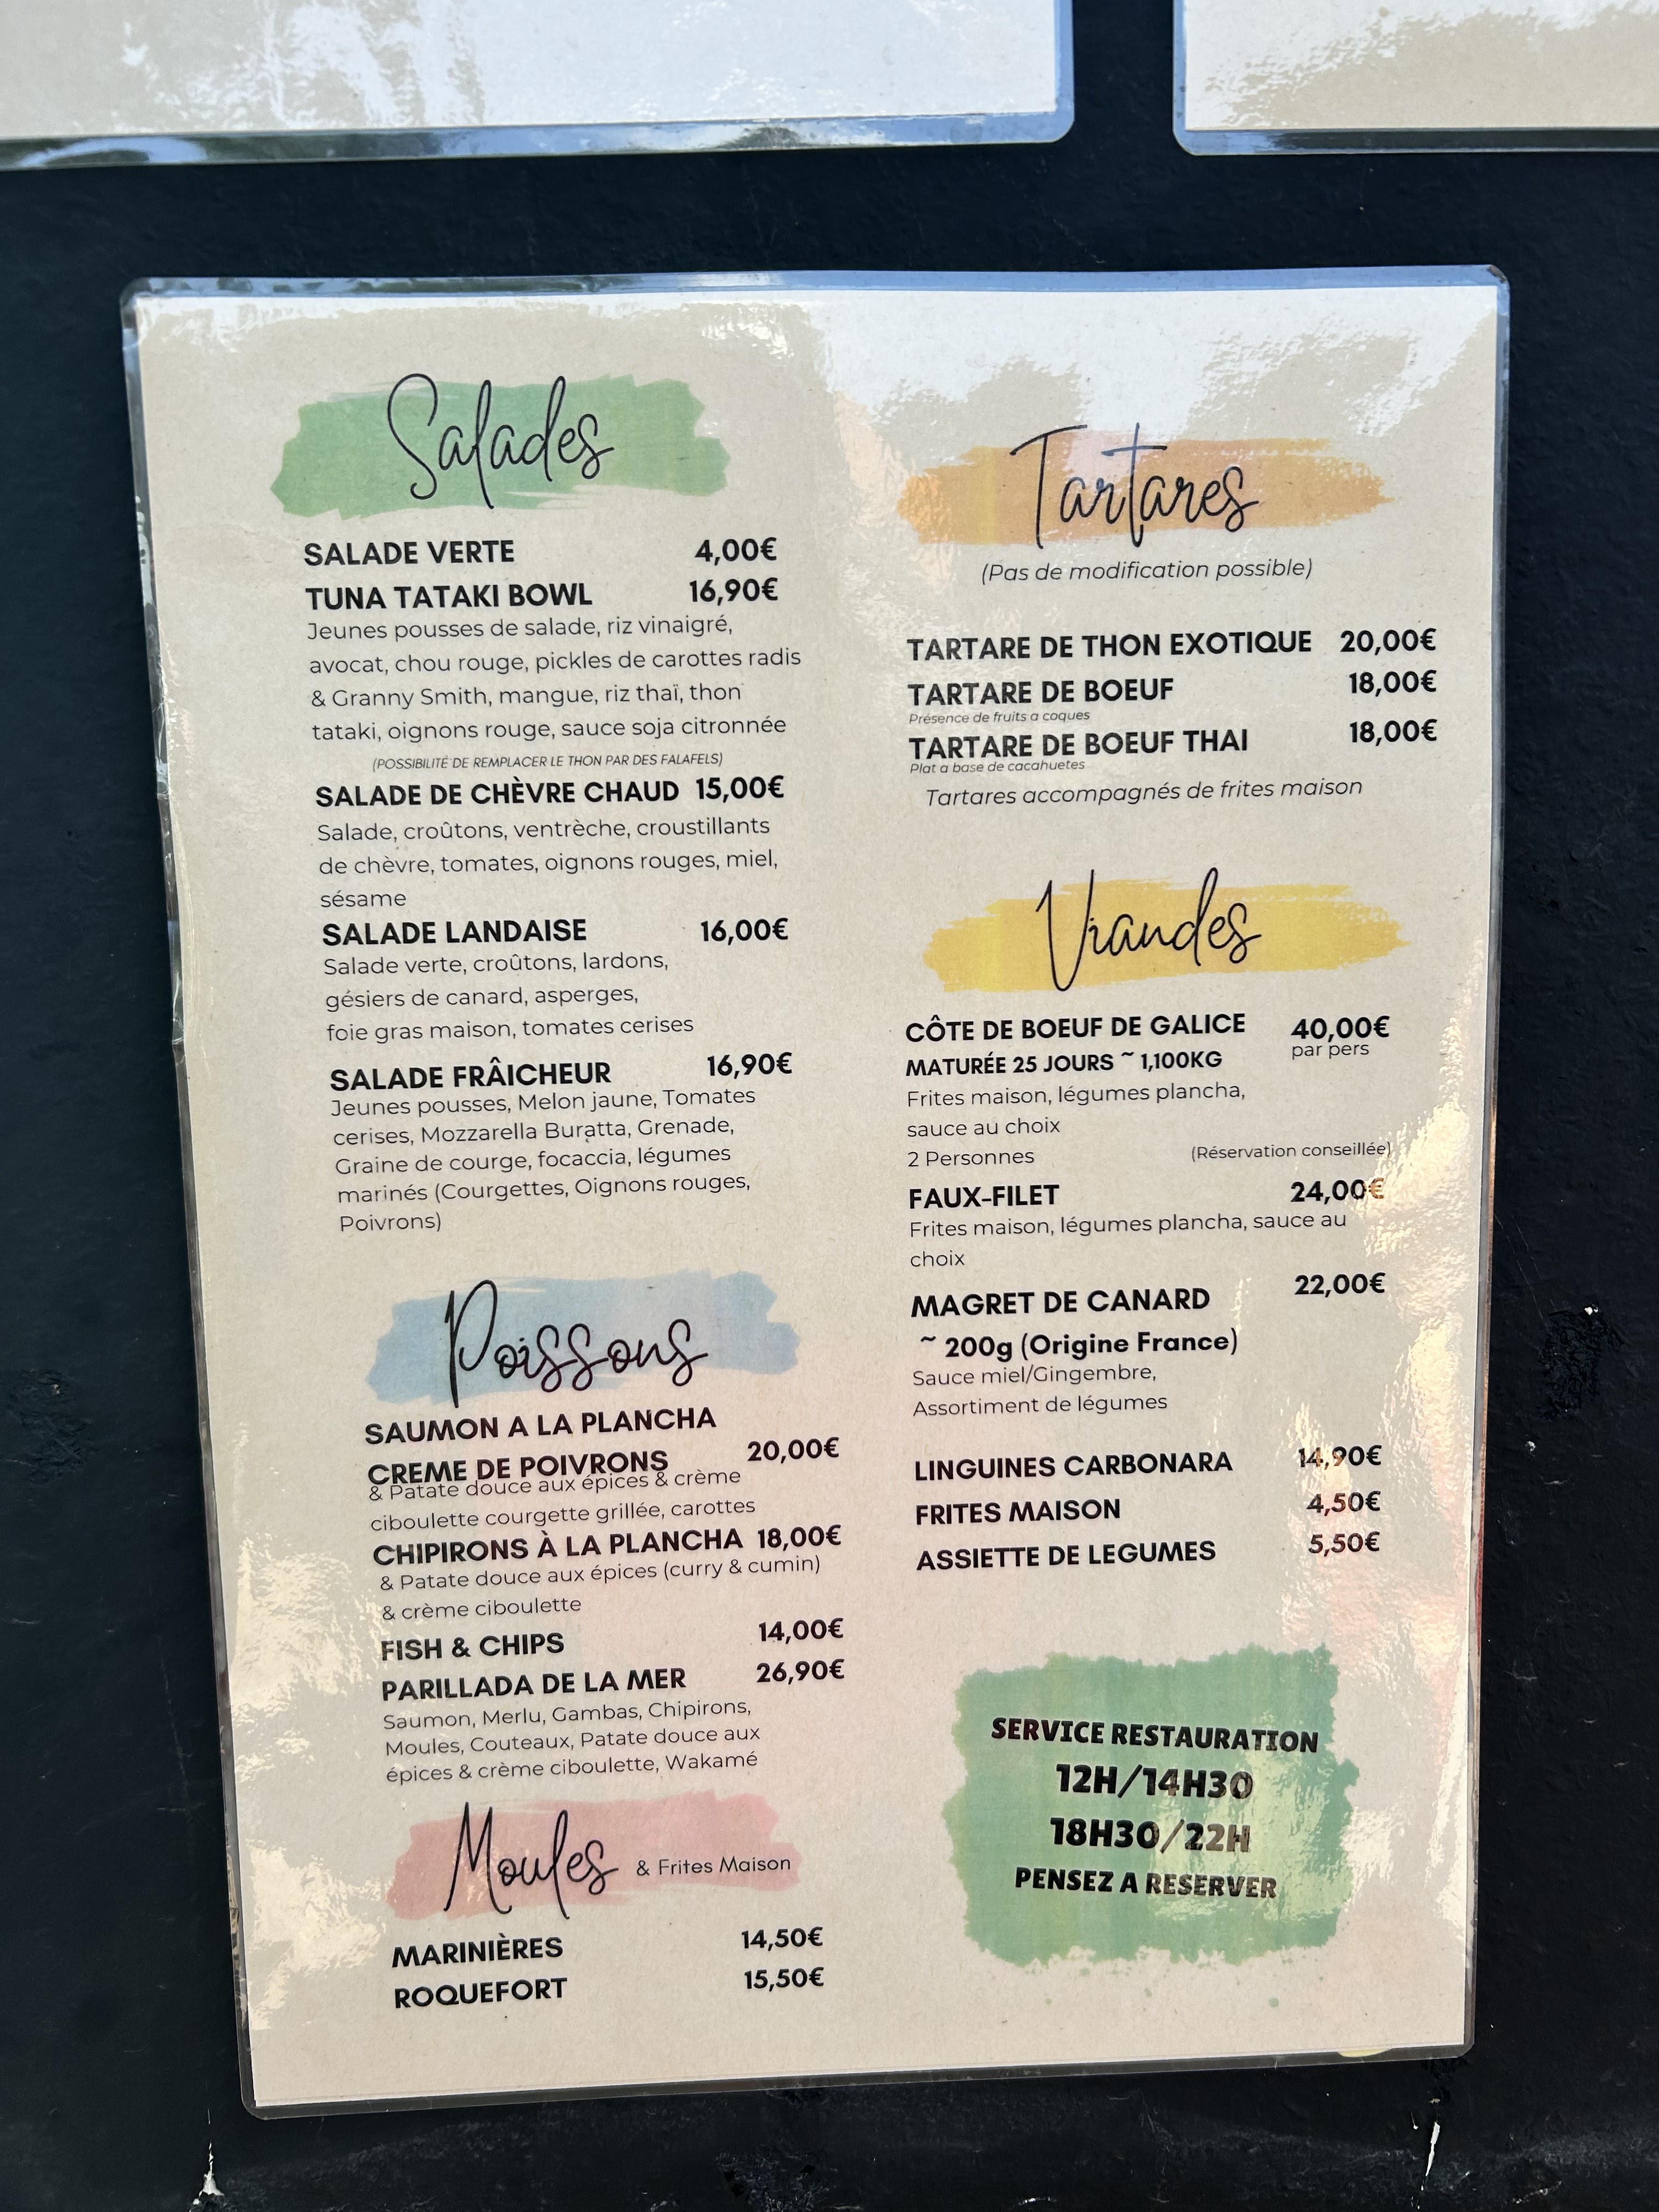 Salades
SALADE VERTE 4,00€
TUNA TATAKI BOWL 16,90€
Jeunes pousses de salade, riz vinaigré,
avocat, chou rouge, pickles de carottes radis
& Granny Smith, mangue, riz thaï, thon
tataki, oignons rouge, sauce soja citronnée
(POSSIBILITÉ DE REMPLACER LE THON PAR DES FALAFELS)
SALADE DE CHÈVRE CHAUD 15,00€
Salade, croûtons, ventrèche, croustillants
de chèvre, tomates, oignons rouges, miel,
sésame
SALADE LANDAISE 16,00€
Salade verte, croûtons, lardons,
gésiers de canard, asperges,
foie gras maison, tomates cerises
SALADE FRÂICHEUR 16,90€
Jeunes pousses, Melon jaune, Tomates
cerises, Mozzarella Buratta, Grenade,
Graine de courge, focaccia, légumes
marinés (Courgettes, Oignons rouges,
Poivrons)
Poissons
SAUMON A LA PLANCHA
CREME DE POIVRONS 20,00€
& Patate douce aux épices & crème
ciboulette courgette grillée, carottes
CHIPIRONS À LA PLANCHA 18,00€
& Patate douce aux épices (curry & cumin)
& crème ciboulette
FISH & CHIPS 14,00€
PARILLADA DE LA MER 26,90€
Saumon, Merlu, Gambas, Chipirons,
Moules, Couteaux, Patate douce aux
épices & crème ciboulette, Wakamé
Moules & Frites Maison
MARINIÈRES 14,50€
ROQUEFORT 15,50€
Tartares
(Pas de modification possible)
TARTARE DE THON EXOTIQUE 20,00€
TARTARE DE BOEUF 18,00€
Présence de fruits a coques
TARTARE DE BOEUF THAI 18,00€
Plat a base de cacahuetes
Tartares accompagnés de frites maison
Viandes
CÔTE DE BOEUF DE GALICE 40,00€
MATURÉE 25 JOURS ~ 1,100KG par pers
Frites maison, légumes plancha,
sauce au choix
2 Personnes (Réservation conseillée)
FAUX-FILET 24,00€
Frites maison, légumes plancha, sauce au
choix
MAGRET DE CANARD 22,00€
~ 200g (Origine France)
Sauce miel/Gingembre,
Assortiment de légumes
LINGUINES CARBONARA 14,90€
FRITES MAISON 4,50€
ASSIETTE DE LEGUMES 5,50€
SERVICE RESTAURATION
12H/14H30
18H30/22H
PENSEZ A RESERVER